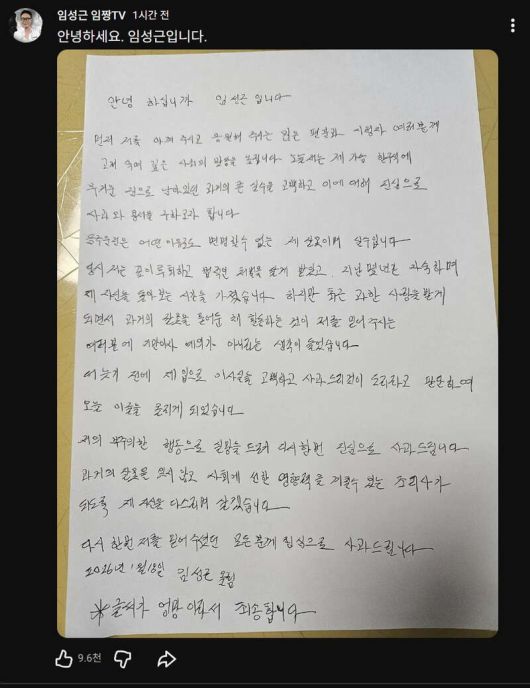 임성근 임짱TV 1시간 전
안녕하세요. 임성근입니다.
안녕 하십니까 임성근 입니다
먼저 저를 아껴 주시고 응원해 주시는 많은 팬분과 시청자 여러분께
고개 숙여 깊은 사죄의 말씀을 드립니다 오늘 저는 제 가슴 한구석에
무거운 짐으로 남아있던 과거의 큰 실수를 고백하고 이에 대해 진심으로
사과와 용서를 구하고자 합니다
음주운전은 어떤 이유로도 변명할수 없는 제 잘못이며 실수입니다
당시 저는 깊이 뉘우치고 법적인 처벌을 달게 받았고, 지난 몇년간 자숙하며
제 자신을 돌아보는 시간을 가졌습니다 하지만 최근 과한 사랑을 받게
되면서 과거의 잘못을 묻어둔 채 활동하는 것이 저를 믿어주시는
여러분에 기만이자 예의가 아니라는 생각이 들었습니다
더 늦기 전에 제 입으로 이사실을 고백하고 사과드리것이 도리라고 판단하여
오늘 이글을 올리게 되었습니다
저의 부주의한 행동으로 실망을 드려 다시한번 진심으로 사과드립니다
과거의 잘못을 잊지 않고 사회에 선한 영향력을 끼칠수 있는 조리사가
되도록 제 자신을 다스리며 살겠습니다
다시 한번 저를 믿어주셨던 모든분께 진심으로 사과드립니다
2026년 1월 18일 임성근 올림
※글씨가 엉망 이라서 죄송합니다
9.6천